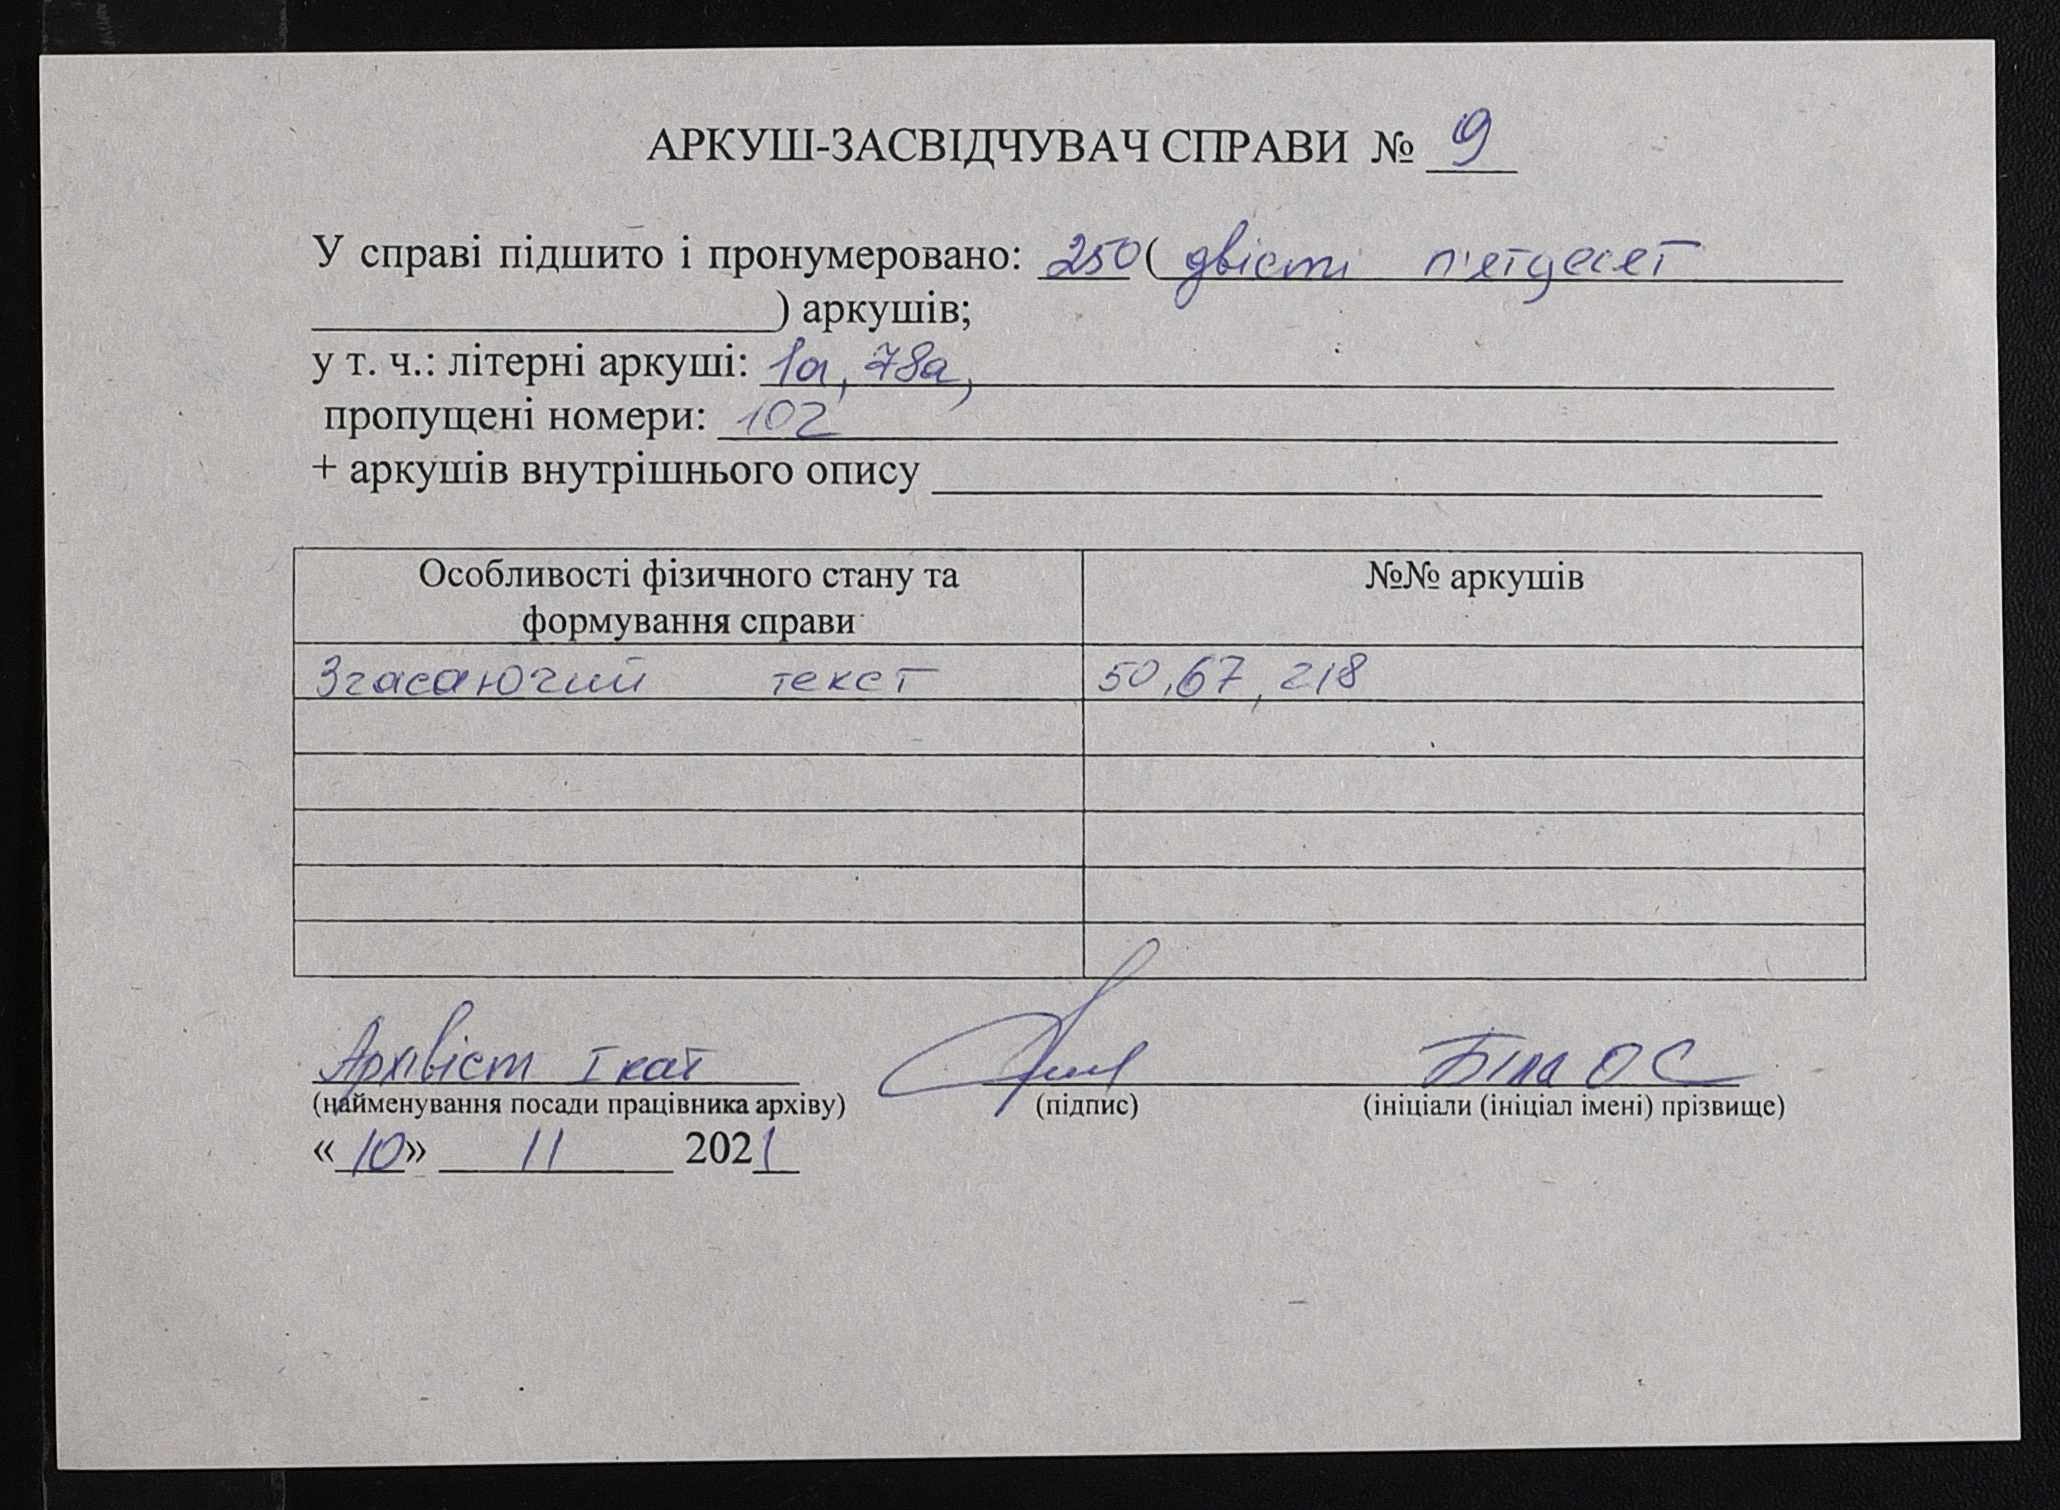 АРКУШ-ЗАСВІДЧУВАЧ СПРАВИ № 9
У справі підшито і пронумеровано: 250 ( двісті п'ятдесят
) аркушів;
у т. ч.: літерні аркуші: 1а, 78а,
пропущені номери: 102
+ аркушів внутрішнього опису
Особливості фізичного стану та
формування справи
№№ аркушів
Згасаючий текст 50, 67, 218
Архівіст І кат Біла О С
(найменування посади працівника архіву) (підпис) (ініціали (ініціал імені) прізвище)
«10» 11 2021